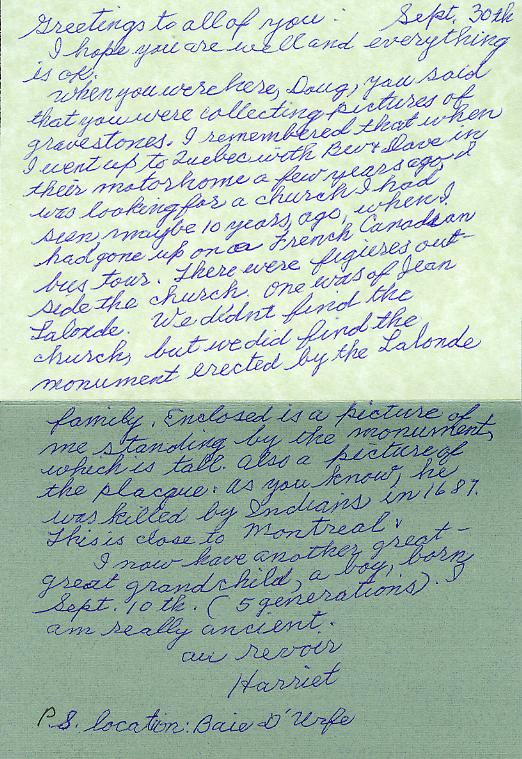 Greetings to all of you: Sept. 30th
I hope you are well and everything
is ok.
When you were here, Doug, you said
that you were collecting pictures of
gravestones. I remembered that when
I went up to Quebec with Bev & Dave in
their motorhome a few years ago, I
was looking for a church I had
seen, maybe 10 years, ago, when I
had gone up on a French Canadian
bus tour. There were figures out-
side the church. One was of Jean
Lalonde. We didn't find the
church, but we did find the
monument erected by the Lalonde
family. Enclosed is a picture of
me standing by the monument,
which is tall. Also a picture of
the placque. As you know, he
was killed by Indians in 1687.
This is close to Montreal.
I now have another great-
great grandchild, a boy, born
Sept. 10th. (5 generations). I
am really ancient.
au revoir
Harriet
P.S. location: Baie D'Urfe